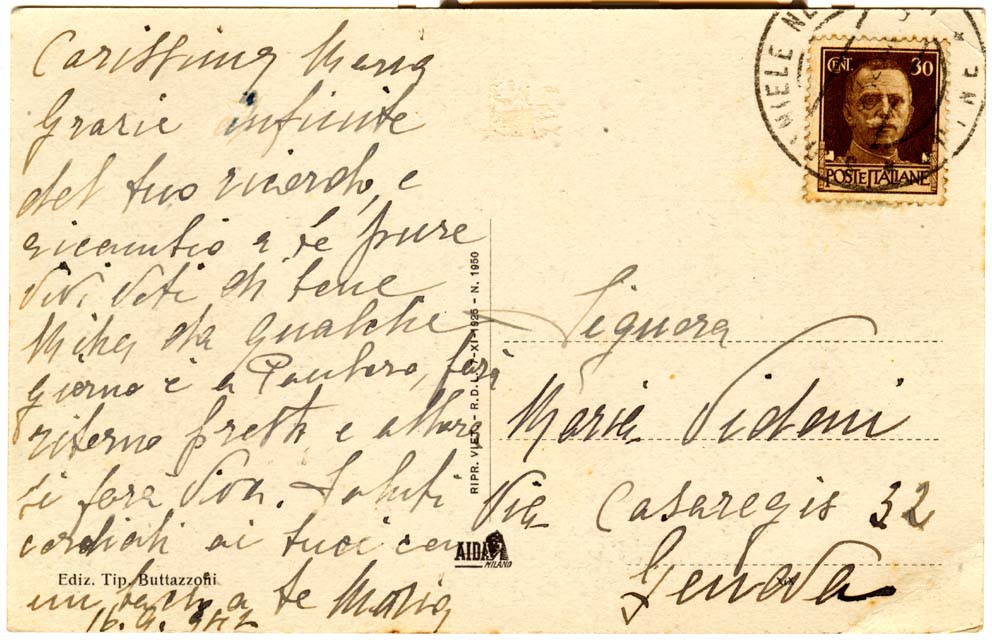 Carissima Maria
Grazie infinite
del tuo ricordo, e
ricambio a te pure
vivi voti di bene
da qualche
giorno è a, farà
ritorno presto e allora
si farà viva. Saluti
cordiali ai tuoi con
un bacio a te Maria
16. 9. 942
Ediz. Tip. Buttazzoni
RIPR. VIET. - R.D.L. 7-XI-1925 - N. 1950
AIDA
MILANO
CENT. 30
POSTE ITALIANE
Signora
Maria Vidoni
Via Casaregis 32
Genova
XIX